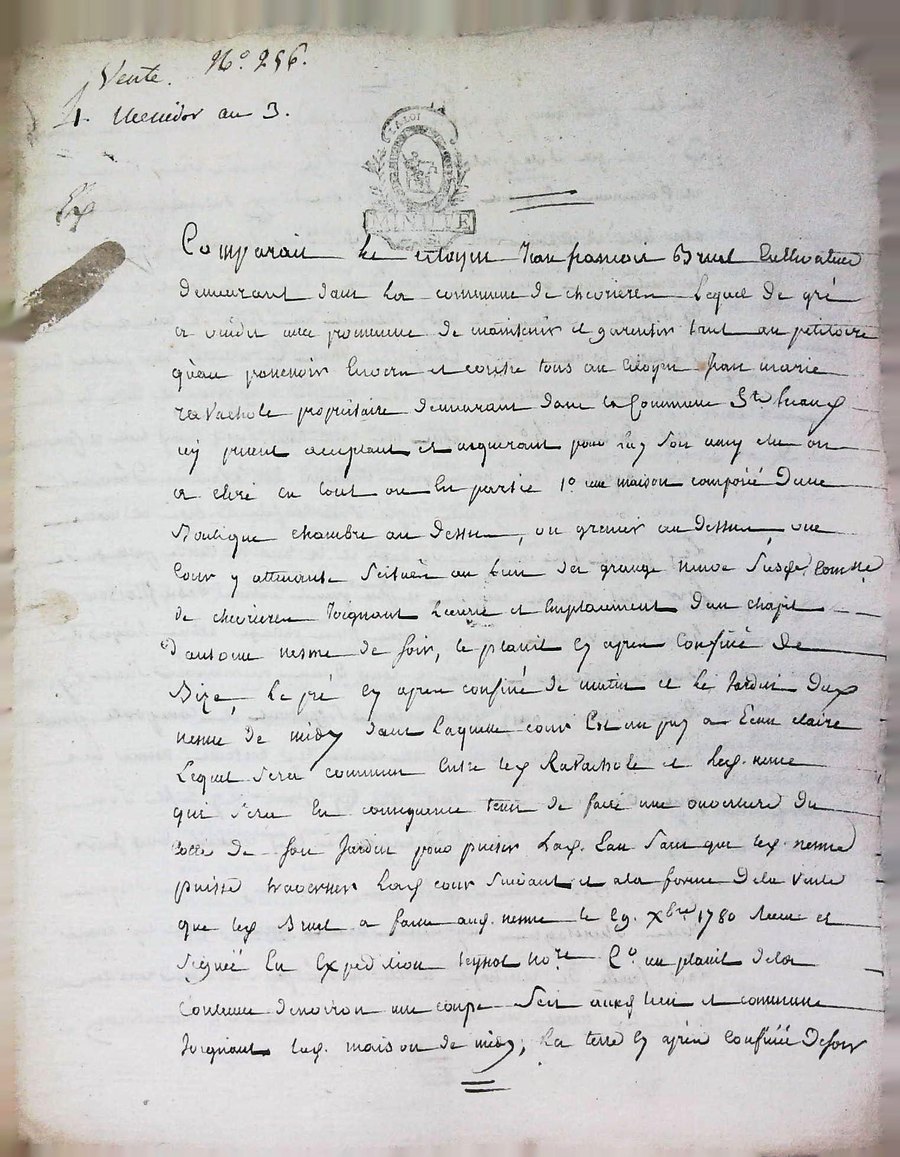 Vente. N° 256.
1. Messidor an 3.
LA LOI
MINUTE
Comparait le citoyen Jean francois Bruel Cultivateur
demeurant dans la commune de chevrieres Lequel de gré
a vendu avec promesse de maintenir et garentir tant au petitoire
qu'au possessoir Envers et contre tous au citoyen Jean marie
Ravachole propriétaire demeurant dans la Commune St
icy présent acceptant et acquerant pour luy son amy élu ou
a elire en tout ou En partie 1° une maison composée dune
Boutique chambre au dessus, un grenier au dessus, une
Cour y attenante Scituée au lieu des grange neuve susde Comune
de chevrieres Joignant et Emplacement dun chapit
d'antoine nesme de soir, le plasit Cy apres confiné de
Bize, Le pré Cy apres confiné de matin et le Jardin dud
nesme de midy dans Laquelle cour Est un puy a Eau claire
Lequel sera commun Entre led Ravachole et led. nesme
qui sera En consequence tenu de faire une ouverture du
cotté de son Jardin pour puiser Lad. Eau sans que led. nesme
puisse traverser Lad cour suivant et ala forme dela vente
que led Bruel a faitte aud. nesme le 29. Xbre 1780 Recue et
signée En Expedition nore 2° un plasit dela
Contenue denviron une coupe Scit auxd lieu et commune
Joignant lad. maison de midy, La terre Cy après confinée de soir